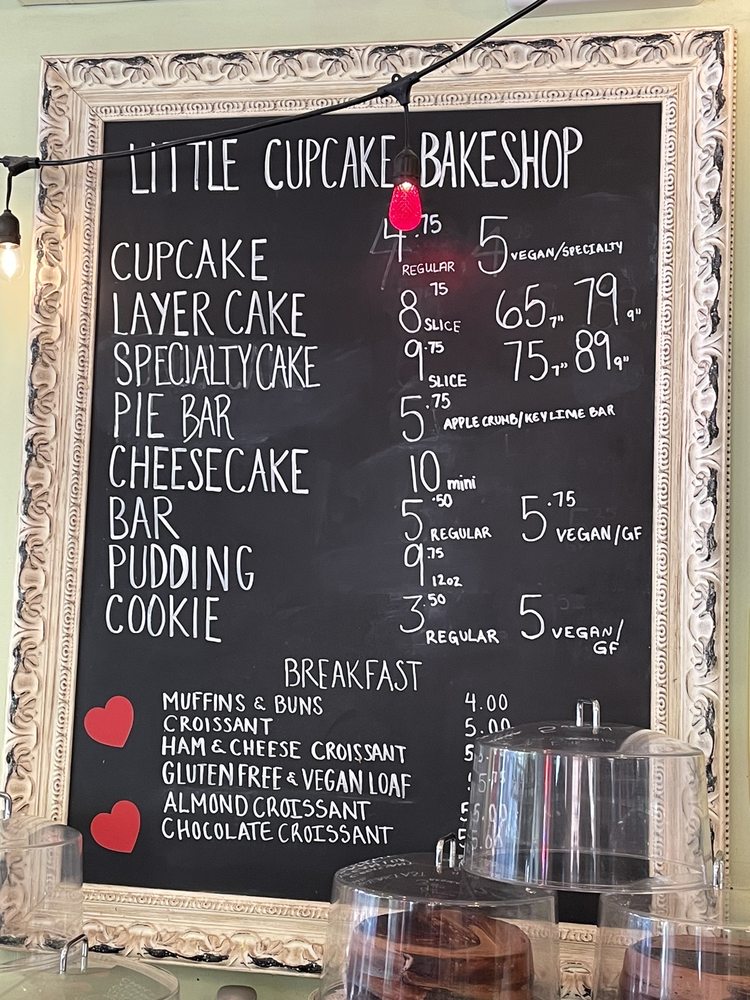 LITTLE CUPCAKE BAKESHOP
CUPCAKE 4.75 REGULAR 5 VEGAN/SPECIALTY
LAYER CAKE 8 75 SLICE 65 7" 79 9"
SPECIALTY CAKE 9.75 SLICE 75 7" 89 9"
PIE BAR 5.75 APPLE CRUMB/KEY LIME BAR
CHEESECAKE 10 mini
BAR 5.50 REGULAR 5.75 VEGAN/GF
PUDDING 9.75 12oz
COOKIE 3.50 REGULAR 5 VEGAN/
GF
BREAKFAST
MUFFINS & BUNS 4.00
CROISSANT 5.00
HAM & CHEESE CROISSANT
GLUTEN FREE & VEGAN LOAF
ALMOND CROISSANT
CHOCOLATE CROISSANT